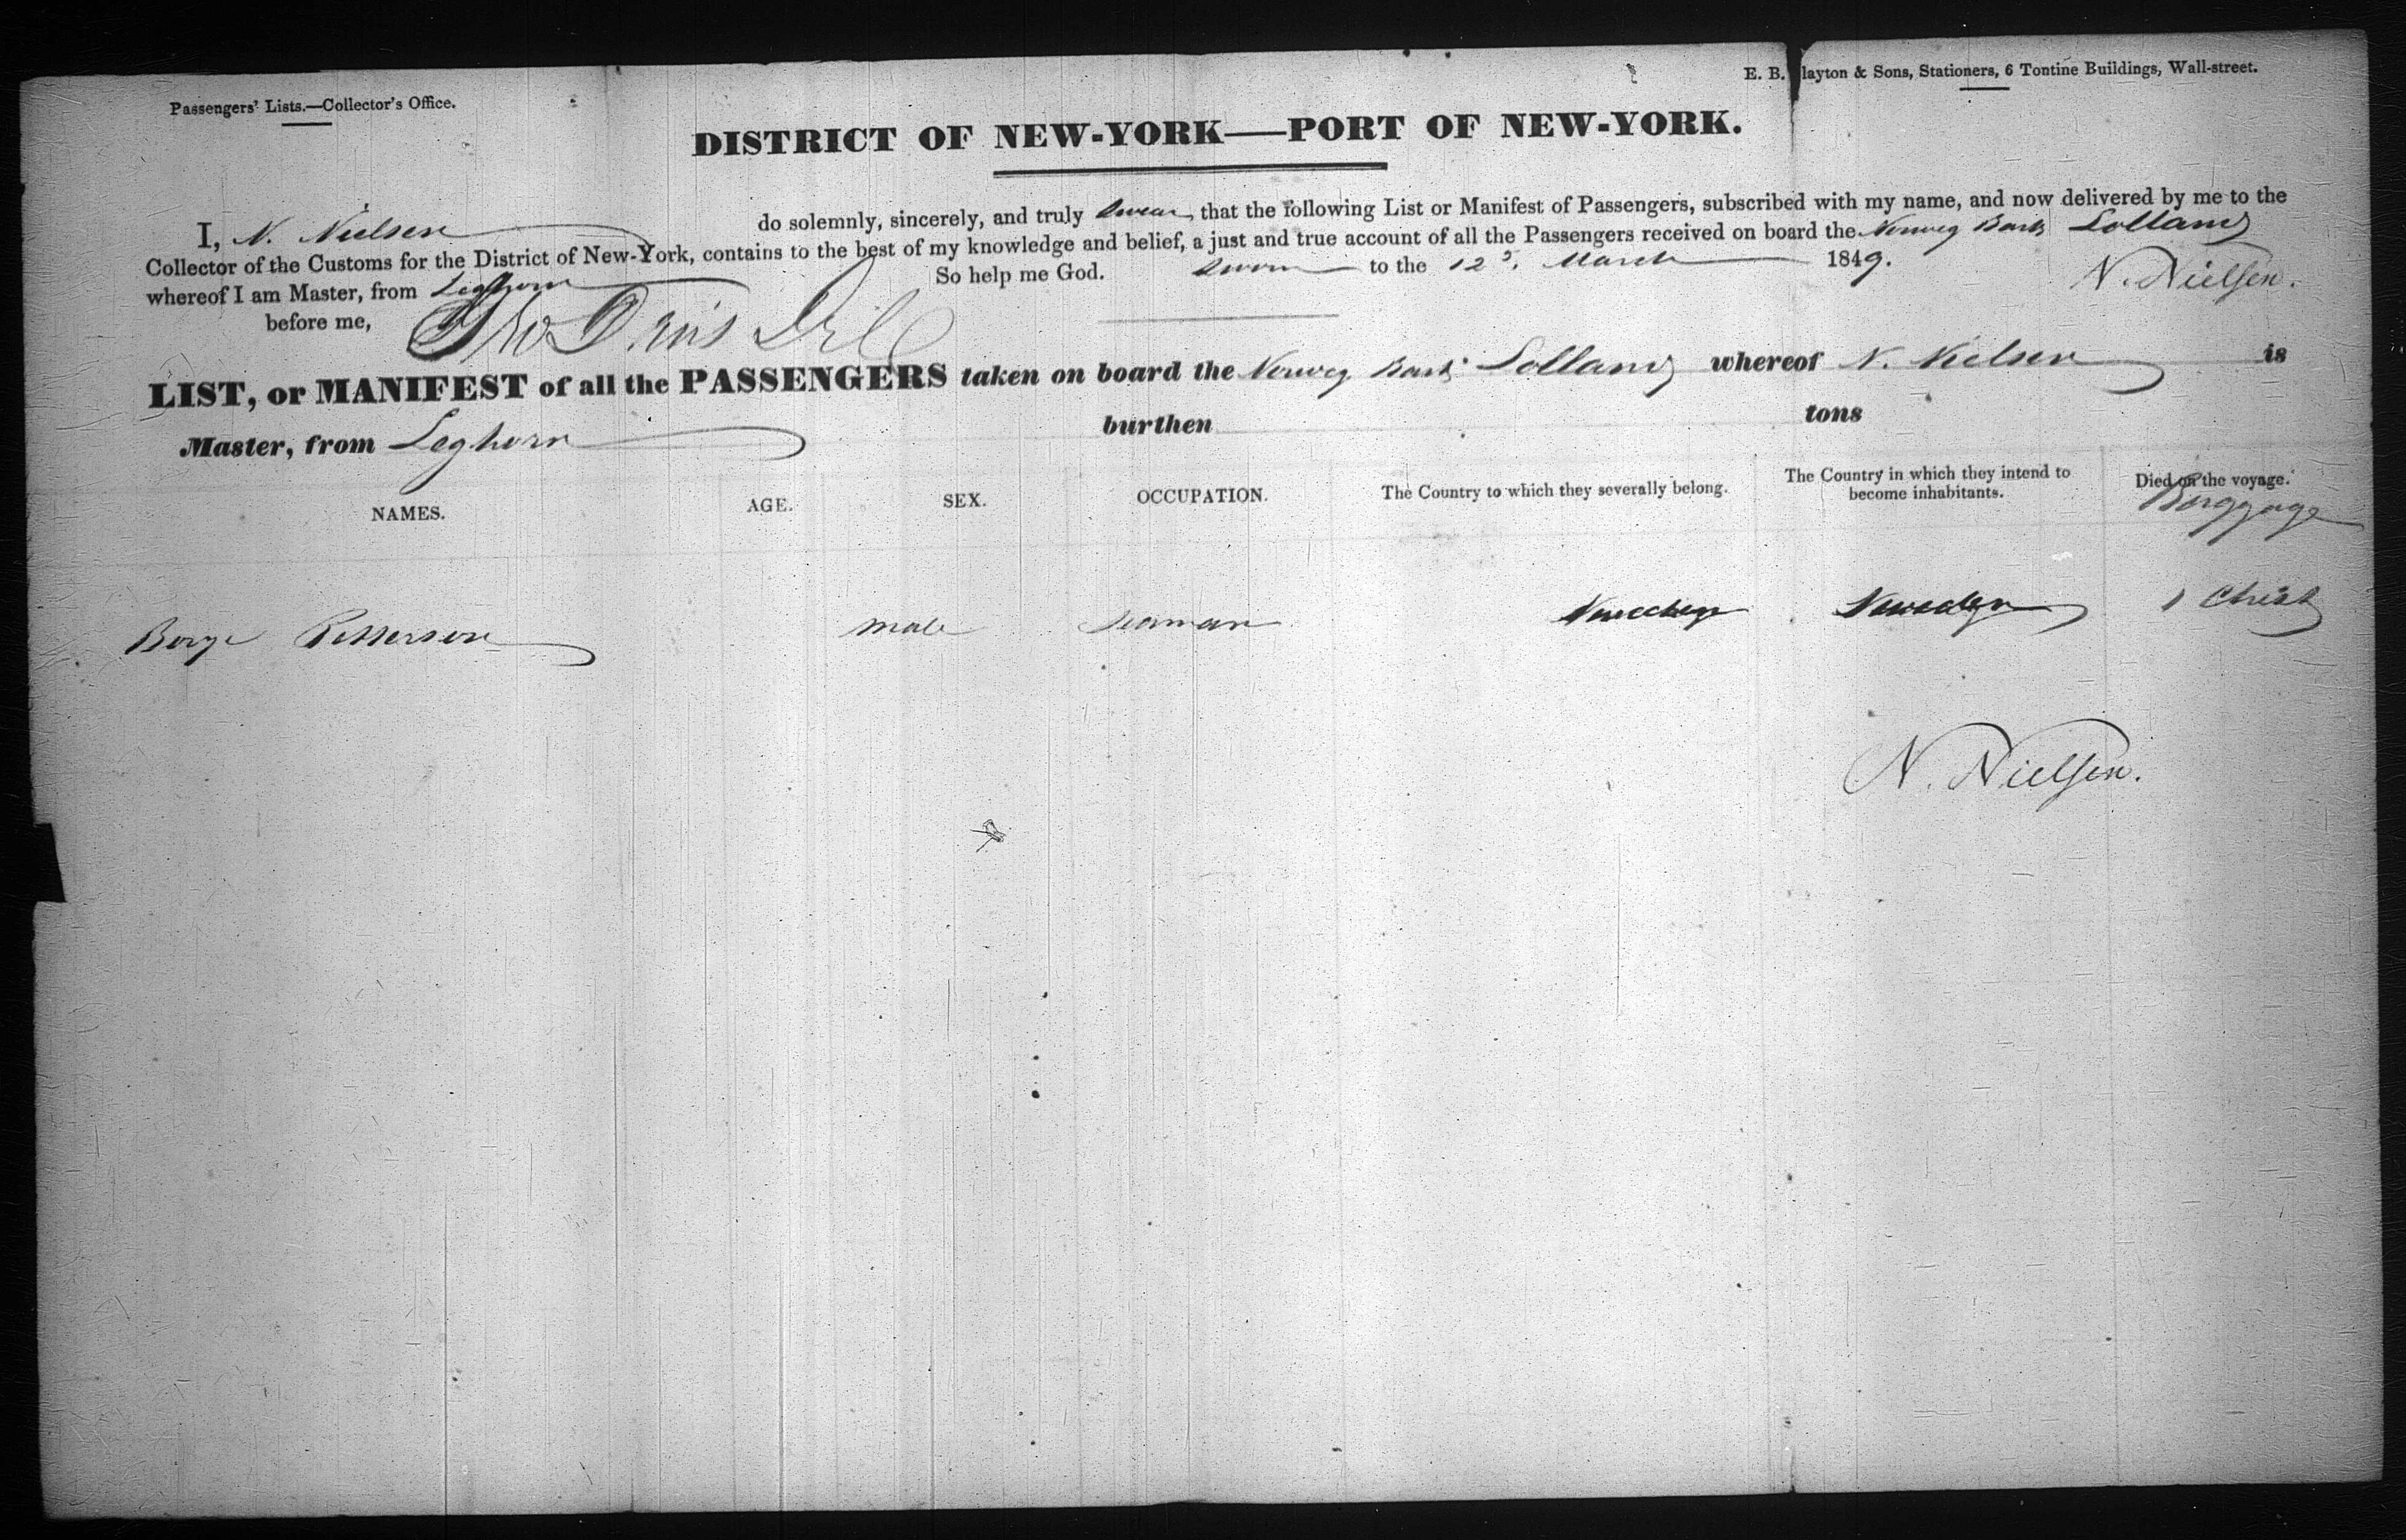 E. B. layton & Sons, Stationers, 6 Tontine Buildings, Wall-street.
Passengers' Lists.—Collector's Office.
DISTRICT OF NEW-YORK—PORT OF NEW-YORK.
I, N. Nielsen do solemnly, sincerely, and truly swear that the following List or Manifest of Passengers, subscribed with my name, and now delivered by me to the
Collector of the Customs for the District of New-York, contains to the best of my knowledge and belief, a just and true account of all the Passengers received on board the Norweg Bark Lolland
whereof I am Master, from Leghorn So help me God. Sworn to the 12 March 1849. N. Nielsen.
before me,
LIST, or MANIFEST of all the PASSENGERS taken on board the Norweg Bark Lolland whereof N. Nielsen is
Master, from Leghorn burthen tons
NAMES. AGE. SEX. OCCUPATION. The Country to which they severally belong. The Country in which they intend to become inhabitants. Died on the voyage.
Baggage
male Seaman 1 Chest
N. Nielsen.